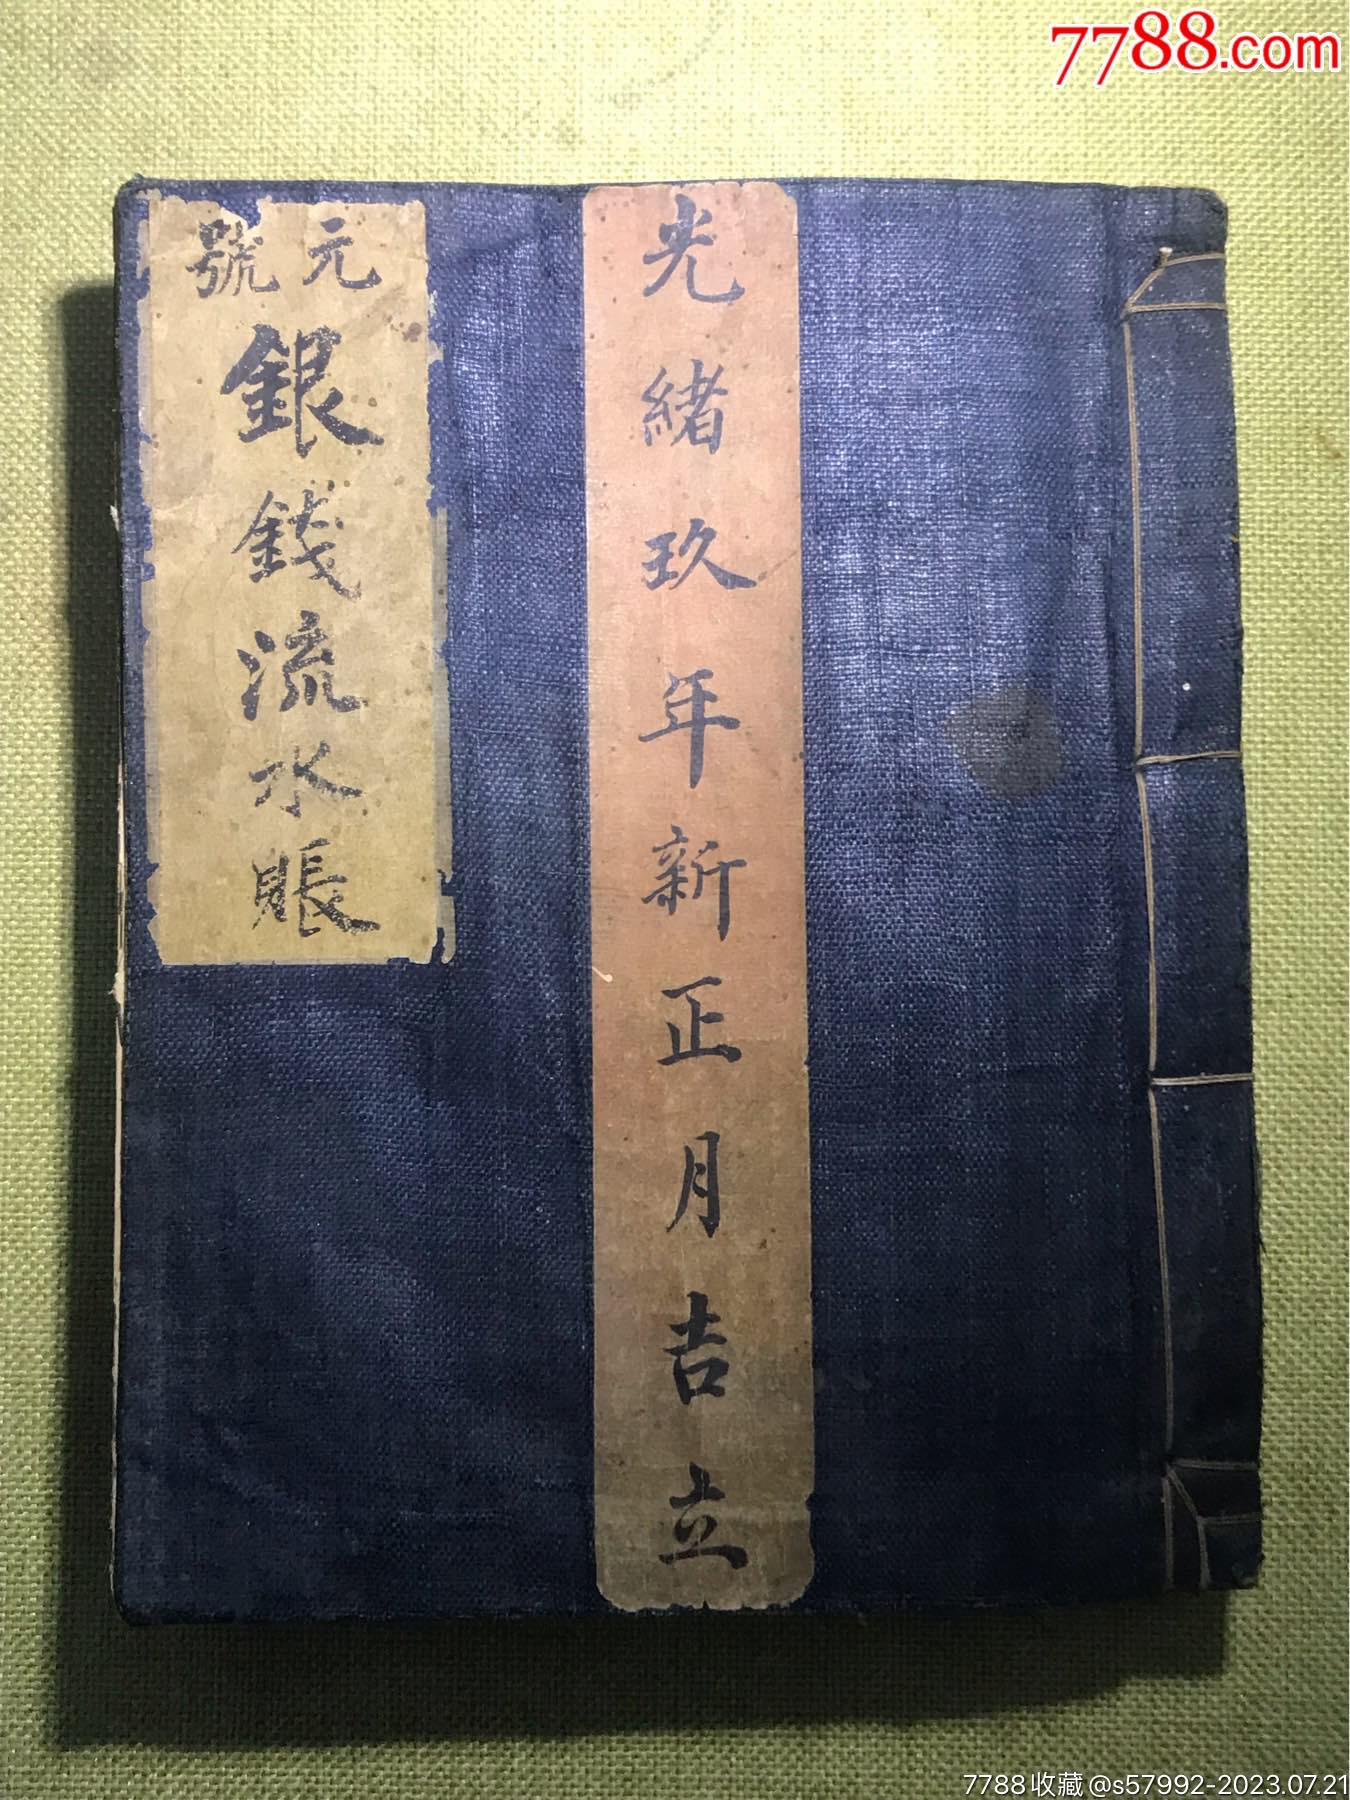 7788.com
光緒玖年新正月吉立
元號
銀錢流水賬
7788收藏@s57992-2023.07.21